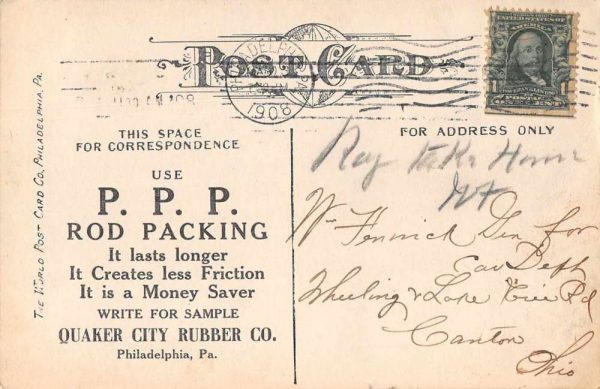 POST CARD
PHILADELPHIA, PA.
1908
1908
UNITED STATES OF AMERICA
1 1
ONE CENT
THIS SPACE
FOR CORRESPONDENCE
USE
P. P. P.
ROD PACKING
It lasts longer
It Creates less Friction
It is a Money Saver
WRITE FOR SAMPLE
QUAKER CITY RUBBER CO.
Philadelphia, Pa.
THE WORLD POST CARD CO., PHILADELPHIA, PA.
FOR ADDRESS ONLY
Ray take Home
Wm Fenwick Gen for
Car Dept
Wheeling & Lake Erie Rd
Canton
Ohio